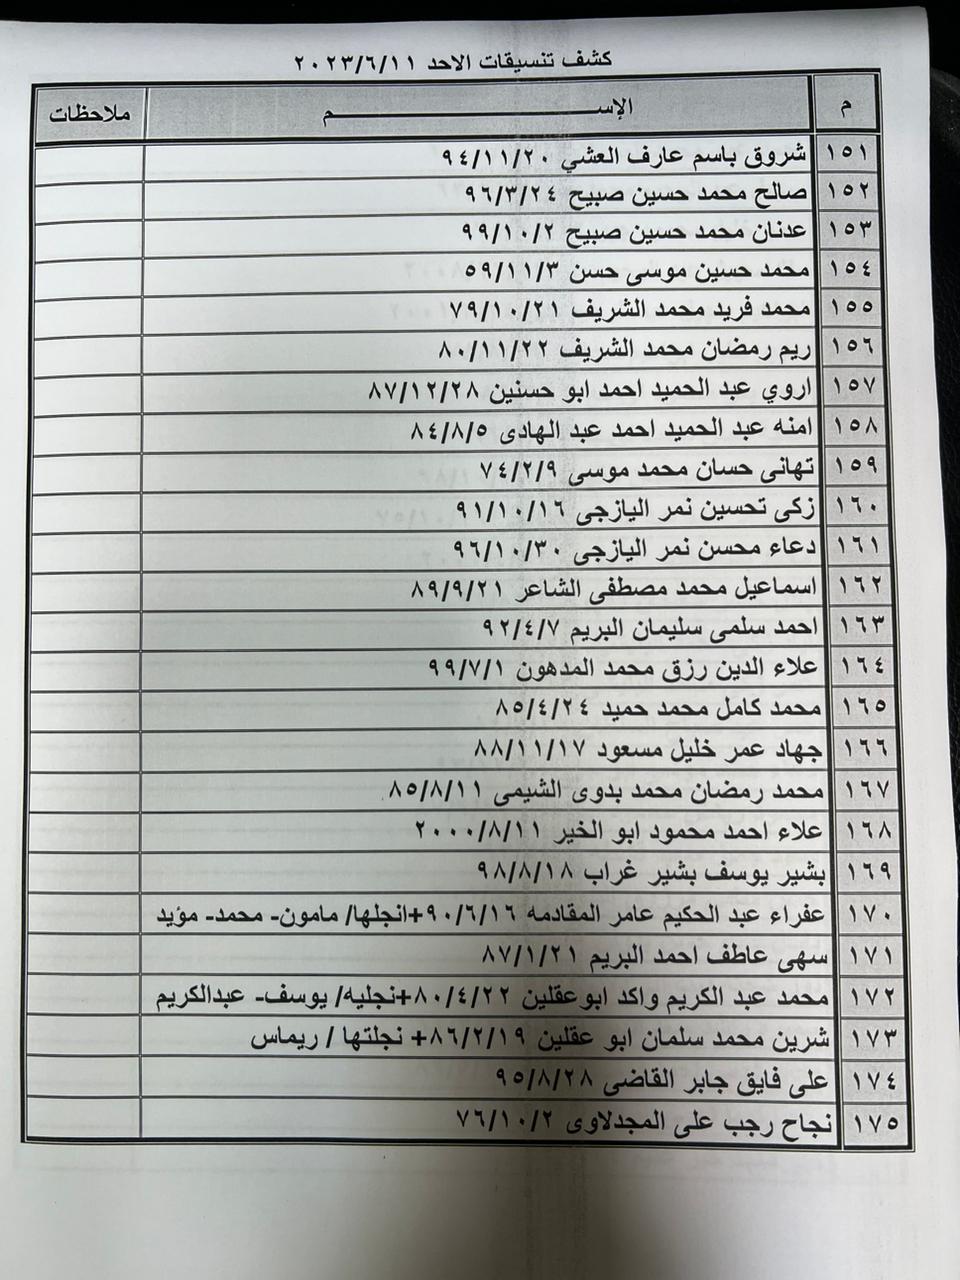 كشف تنسيقات الاحد ٢٠٢٣/٦/١١
م الإســـــــــــــــــــــــــم ملاحظات
١٥١ شروق باسم عارف العشي ٩٤/١١/٢٠
١٥٢ صالح محمد حسين صبيح ٩٦/٣/٢٤
١٥٣ عدنان محمد حسين صبيح ٩٩/١٠/٢
١٥٤ محمد حسين موسى حسن ٥٩/١١/٣
١٥٥ محمد فريد محمد الشريف ٧٩/١٠/٢١
١٥٦ ريم رمضان محمد الشريف ٨٠/١١/٢٢
١٥٧ اروي عبد الحميد احمد ابو حسنين ٨٧/١٢/٢٨
١٥٨ امنه عبد الحميد احمد عبد الهادى ٨٤/٨/٥
١٥٩ تهانى حسان محمد موسى ٧٤/٢/٩
١٦٠ زكى تحسين نمر اليازجى ٩١/١٠/١٦
١٦١ دعاء محسن نمر اليازجى ٩٦/١٠/٣٠
١٦٢ اسماعيل محمد مصطفى الشاعر ٨٩/٩/٢١
١٦٣ احمد سلمى سليمان البريم ٩٢/٤/٧
١٦٤ علاء الدين رزق محمد المدهون ٩٩/٧/١
١٦٥ محمد كامل محمد حميد ٨٥/٤/٢٤
١٦٦ جهاد عمر خليل مسعود ٨٨/١١/١٧
١٦٧ محمد رمضان محمد بدوى الشيمى ٨٥/٨/١١
١٦٨ علاء احمد محمود ابو الخير ٢٠٠٠/٨/١١
١٦٩ بشير يوسف بشير غراب ٩٨/٨/١٨
١٧٠ عفراء عبد الحكيم عامر المقادمه ٩٠/٦/١٦+انجلها/ مامون- محمد- مؤيد
١٧١ سهى عاطف احمد البريم ٨٧/١/٢١
١٧٢ محمد عبد الكريم واكد ابوعقلين ٨٠/٤/٢٢+نجليه/ يوسف- عبدالكريم
١٧٣ شرين محمد سلمان ابو عقلين ٨٦/٢/١٩+ نجلتها / ريماس
١٧٤ على فايق جابر القاضى ٩٥/٨/٢٨
١٧٥ نجاح رجب على المجدلاوى ٧٦/١٠/٢